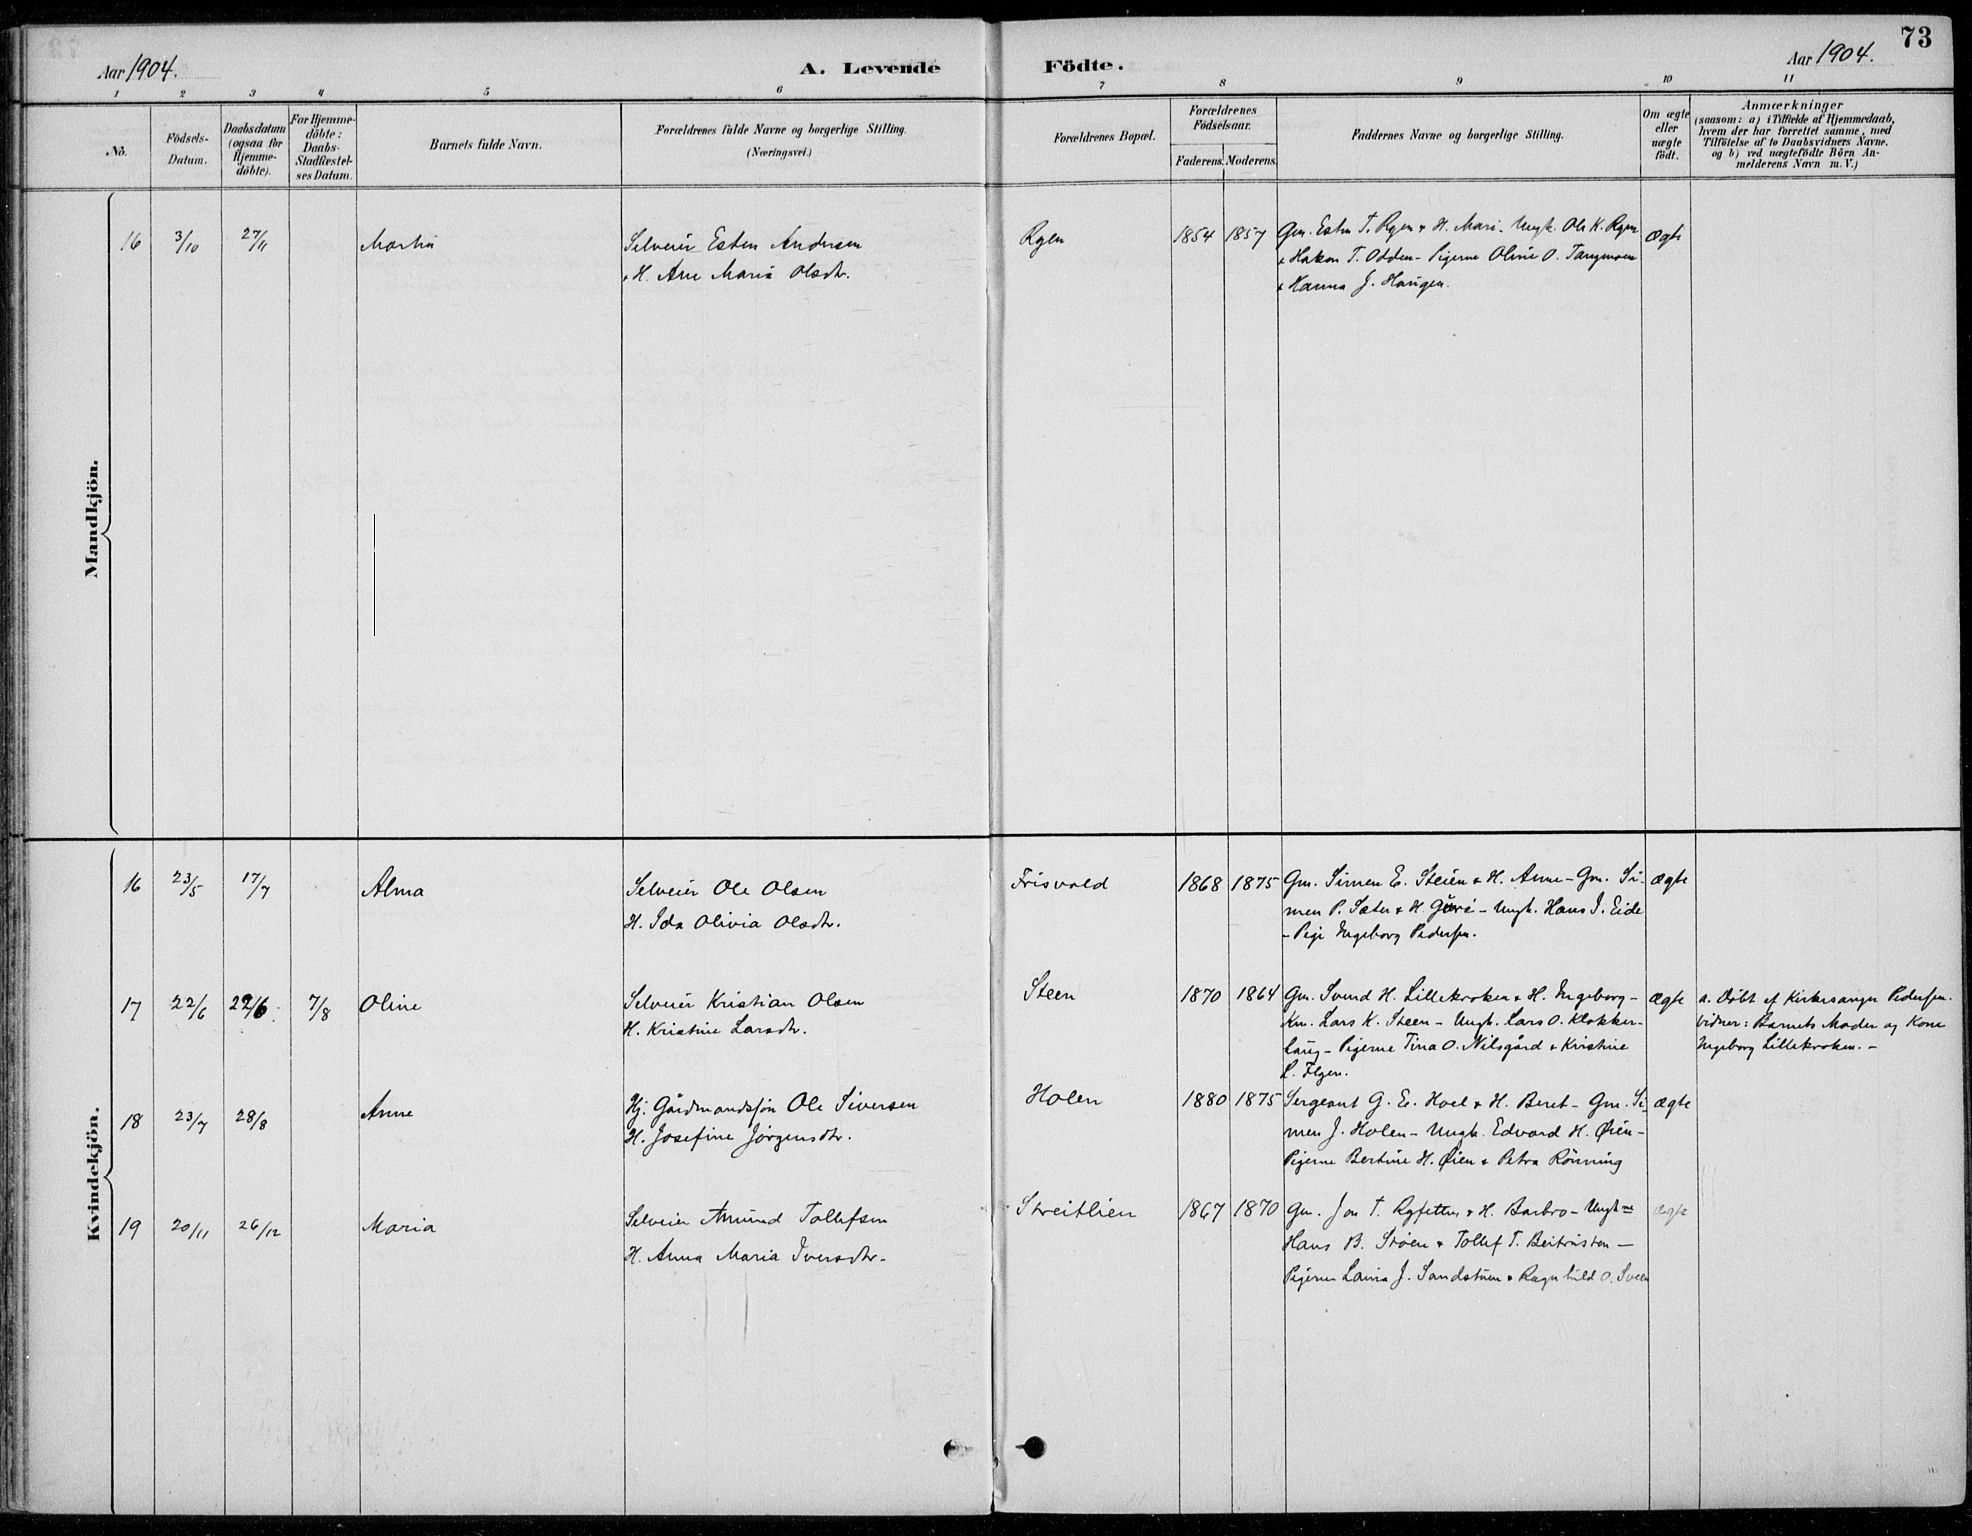 73
Aar 1904.
A. Levende Födte.
Aar 1904.
1 2 3 4 5 6 7 8 9 10 11
No.
Födsels-
Datum.
Daabsdatum
(ogsaa for
Hjemme-
döbte).
For Hjemme-
döbte:
Daabs-
Stadfæstel-
ses Datum.
Barnets fulde Navn.
Forældrenes fulde Navne og borgerlige Stilling.
(Næringsvei.)
Forældrenes Bopæl.
Forældrenes
Födselsaar.
Faderens. Moderens.
Faddernes Navne og borgerlige Stilling.
Om ægte
eller
uægte
födt.
Anmærkninger
(saasom: a) i Tilfælde af Hjemmedaab,
hvem der har forrettet samme, med
Tilföielse af to Daabsvidners Navne,
og b) ved uægtefödte Börn An-
melderens Navn m. V.)
Mandkjön.
16 3/10 27/11 Martin
Selveier Esten Andersen
& H. Ane Maria Olsdtr.
Rgen 1854 1857
Gm. Esten T. Rgen & H. Mari. Ungk. Ole K. Rgen
& Hakon T. Odden - Pigerne Oline O. Tangmoen
& Hanna J. Haugen.
ægte
Kvindekjön.
16 23/5 17/7 Alma
Selveier Ole Olsen
H. Ida Olivia Olsdtr.
Frisvold 1868 1875
Gm. Simen E. Steien & H. Anne - Gm. Si-
men P. Sæter & H. Guri - Ungk. Hans J. Eide
- Pige Ingeborg Pedersen.
ægte
17 22/6 22/6 7/8 Oline
Selveier Kristian Olsen
H. Kristine Larsdtr.
Steen 1870 1864
Gm. Svend H. Lillekroken & H. Ingeborg -
Km. Lars K. Steen - Ungk. Lars O. Klokker-
haug - Pigerne Tina O. Nilsgård & Kristine
L. Elgen.
ægte
a. Døbt af Kirkesanger Pedersen.
Vidner: Barnets Moder og Kone
Ingeborg Lillekroken. -
18 23/7 28/8 Anne
Hj. Gårdmandssøn Ole Siversen
H. Josefine Jørgensdtr.
Holen 1880 1875
Sergeant G. E. Hoel & H. Beret - Gm. Si-
men J. Holen - Ungk. Edvard H. Øien -
Pigerne Bertine H. Øien & Petra Rönning
ægte
19 20/11 26/12 Maria
Selveier Amund Tollefsen
H. Anna Maria Iversdtr.
Streitlien 1867 1870
Gm. Jon T. & H. Barbro - Ungkne
Hans B. Støen & Tollef T. -
Pigerne J. Sandstuen & Ragnhild O. Sveen
ægte